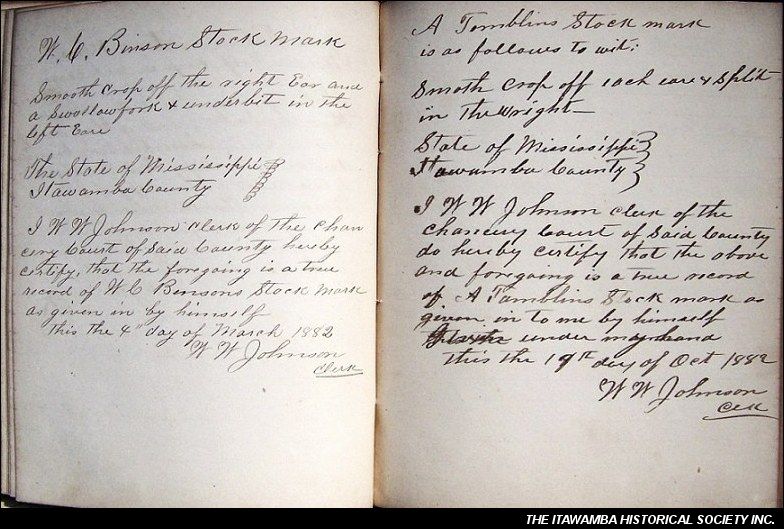 W. C. Binson Stock Mark
Smooth Crop off the right Ear and
a Swollowfork & underbit in the
left Eare
The State of Mississippi
Itawamba County
I W W Johnson clerk of the Chan
cery Court of Said County hereby
certify, that the foregoing is a true
record of W. C Binsons Stock Mark
as given in by himself
this the 4th day of March 1882
W W Johnson
Clerk
A Tomblins Stock mark
is as follows to wit:
Smoth Crop off each eare & Split
in the Wright
State of Mississippi
Itawamba County
I W W Johnson clerk of the
chancery Court of Said County
do hereby certify that the above
and foregoing is a true record
of A Tomblins Stock mark as
given in to me by himself
under my hand
this the 19th day of Oct 1882
W W Johnson
Clk
THE ITAWAMBA HISTORICAL SOCIETY INC.